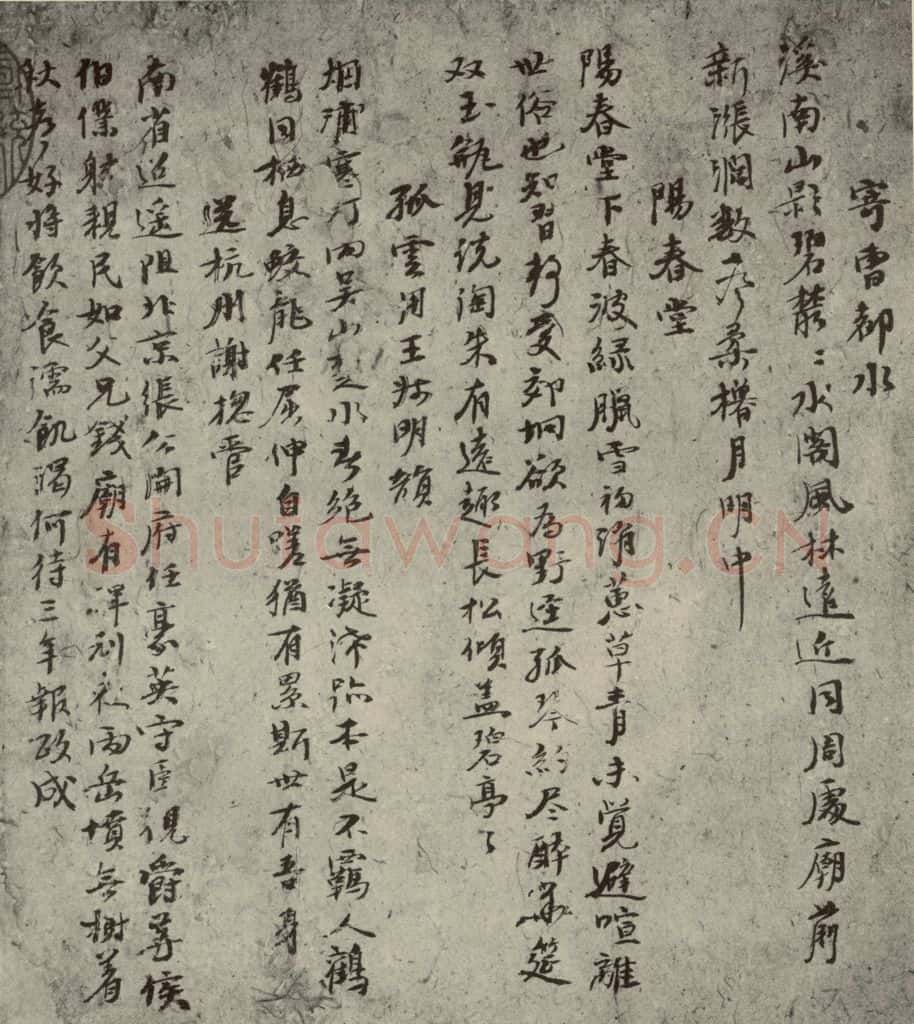 寄曹都水
溪南山影碧叢〻水閣風林遠近同周處廟前
新漲濶數聲柔櫓月明中
陽春堂
陽春堂下春波綠臘雪初消蕙草青未覺避喧離
世俗也知習靜愛郊坰欲為野逕孤琴約尽醉華筵
双玉瓶見說陶朱有遠趣長松傾盖碧亭〻
孤雲用王叔明韻
烟浦寒汀雨吴山楚水春絕無凝滯跡本是不羈人鶴
鶴同栖息蛟龍任屈伸自嗟猶有累斯世有吾身
送杭州謝揔管
南省迢遥阻北京張公開府任豪英守臣視爵等侯
伯僕射親民如父兄錢廟有碑刊夜雨岳墳無樹着
秋聲好將飲食濡飢渴何待三年報政成
Shufawang.CN